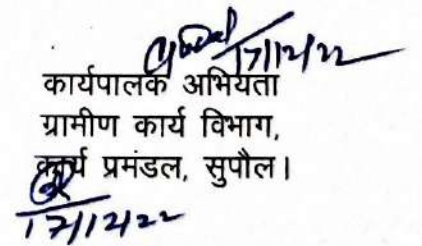 17/12/22
कार्यपालक अभियंता
ग्रामीण कार्य विभाग,
कार्य प्रमंडल, सुपौल।
17/12/22